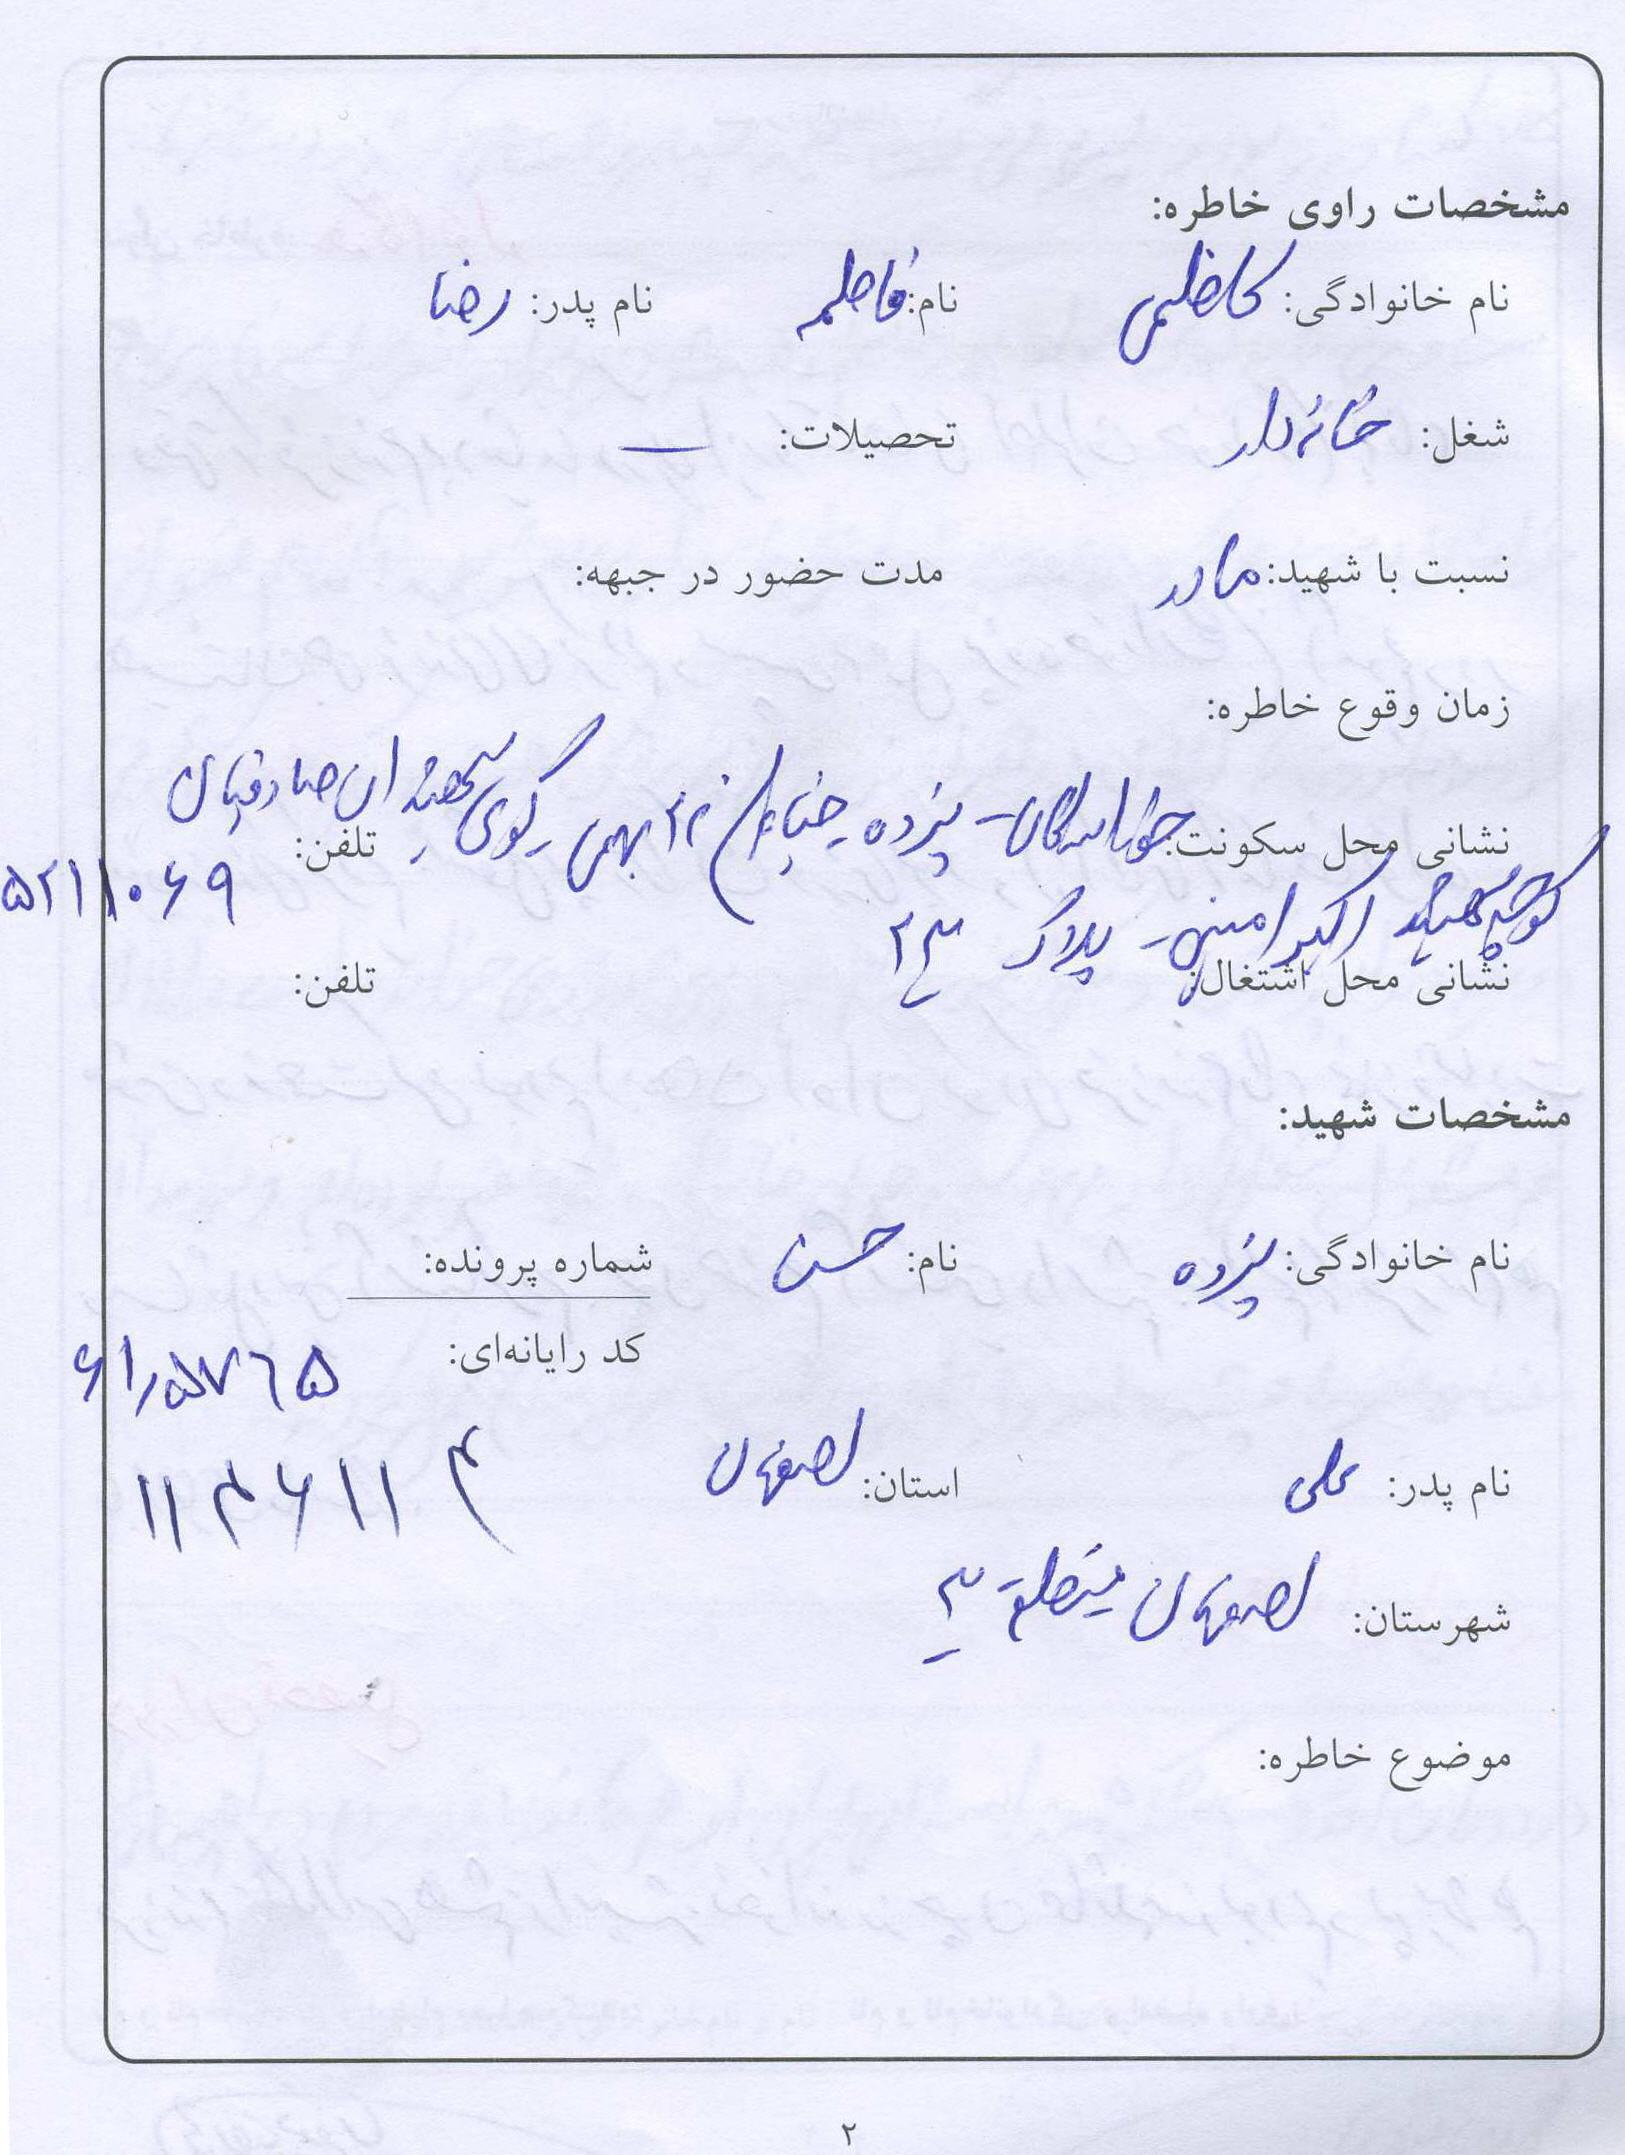 مشخصات راوی خاطره:
نام خانوادگی: کاظمی نام: فاطمه نام پدر: رضا
شغل: خانه دار تحصیلات: —
نسبت با شهید: مادر مدت حضور در جبهه:
زمان وقوع خاطره:
نشانی محل سکونت: خوراسگان - پزوه خیابان ۲۲ بهمن کوی شهیدان صادقیان تلفن: ۵۲۱۱۰۶۹
کوچه شهید اکبر امینی - پلاک ۲۳
نشانی محل اشتغال: تلفن:
مشخصات شهید:
نام خانوادگی: پزوه نام: حسن شماره پرونده:
کد رایانه‌ای: ۶۱۰۵۷۶۵
نام پدر: علی استان: اصفهان ۱۱۴۶۱۱۴
شهرستان: اصفهان منطقه ۳
موضوع خاطره:
۲